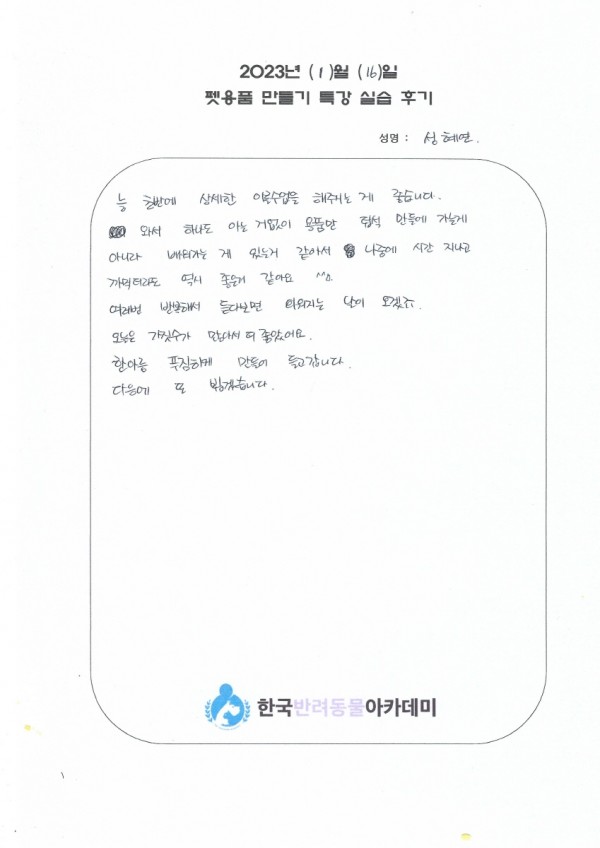 2023년 (1)월 (16)일
펫용품 만들기 특강 실습 후기
성명 : 성혜연.
늘 초반에 상세한 이론수업을 해주시는 게 좋습니다.
와서 하나도 아는 거 없이 용품만 덥석 만들에 가는게
아니라 배워가는 게 있는거 같아서 나중에 시간 지나고
까먹더라도 역시 좋은거 같아요 ^^
여러번 반복해서 듣다보면 외워지는 날이 오겠죠.
오늘은 가짓수가 많아서 더 좋았어요.
한아름 푹짐하게 만들어 들고갑니다.
다음에 또 뵙겠습니다.
한국반려동물아카데미